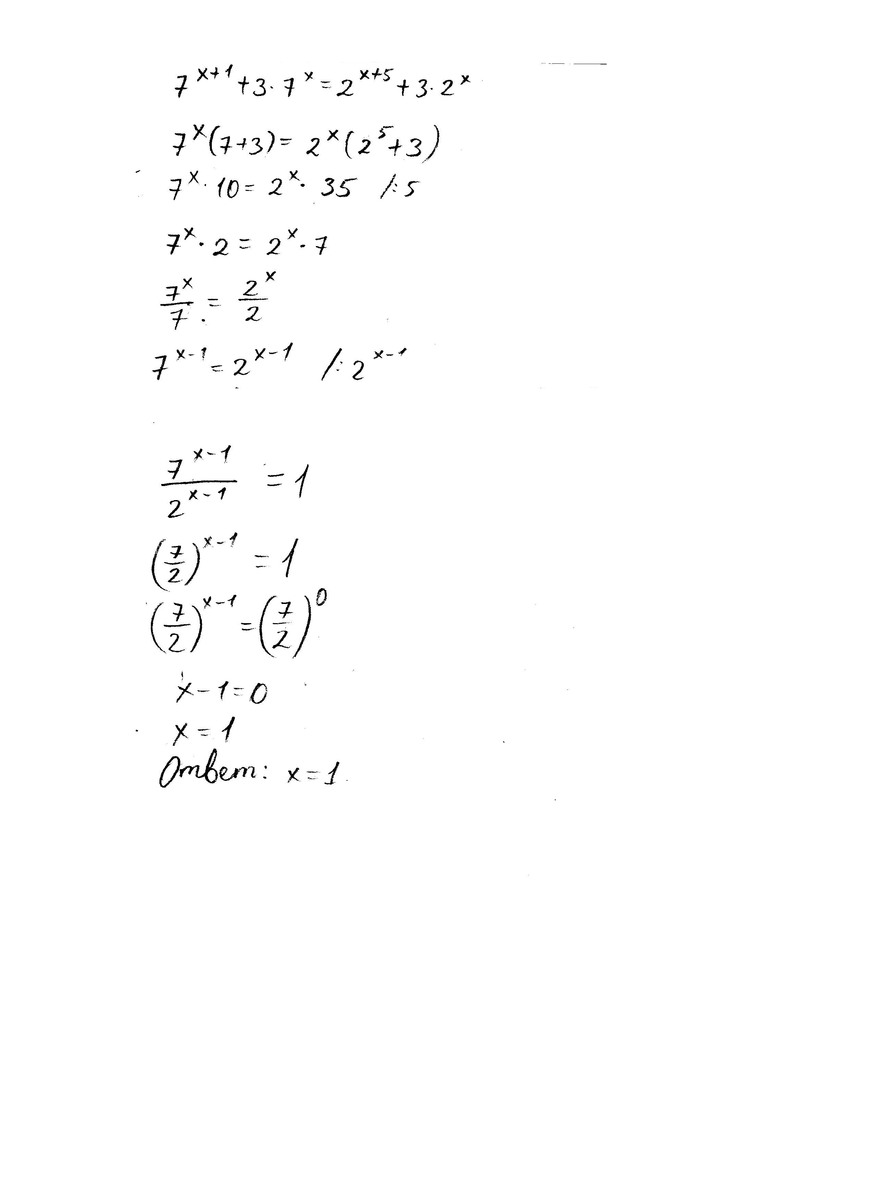 7^{x+1} + 3 · 7^x = 2^{x+5} + 3 · 2^x
7^x (7+3) = 2^x (2^5 + 3)
7^x · 10 = 2^x · 35 /:5
7^x · 2 = 2^x · 7
7^x/7 = 2^x/2
7^{x-1} = 2^{x-1} /:2^{x-1}
7^{x-1}/2^{x-1} = 1
(7/2)^{x-1} = 1
(7/2)^{x-1} = (7/2)^0
x - 1 = 0
x = 1
Ответ: x = 1.